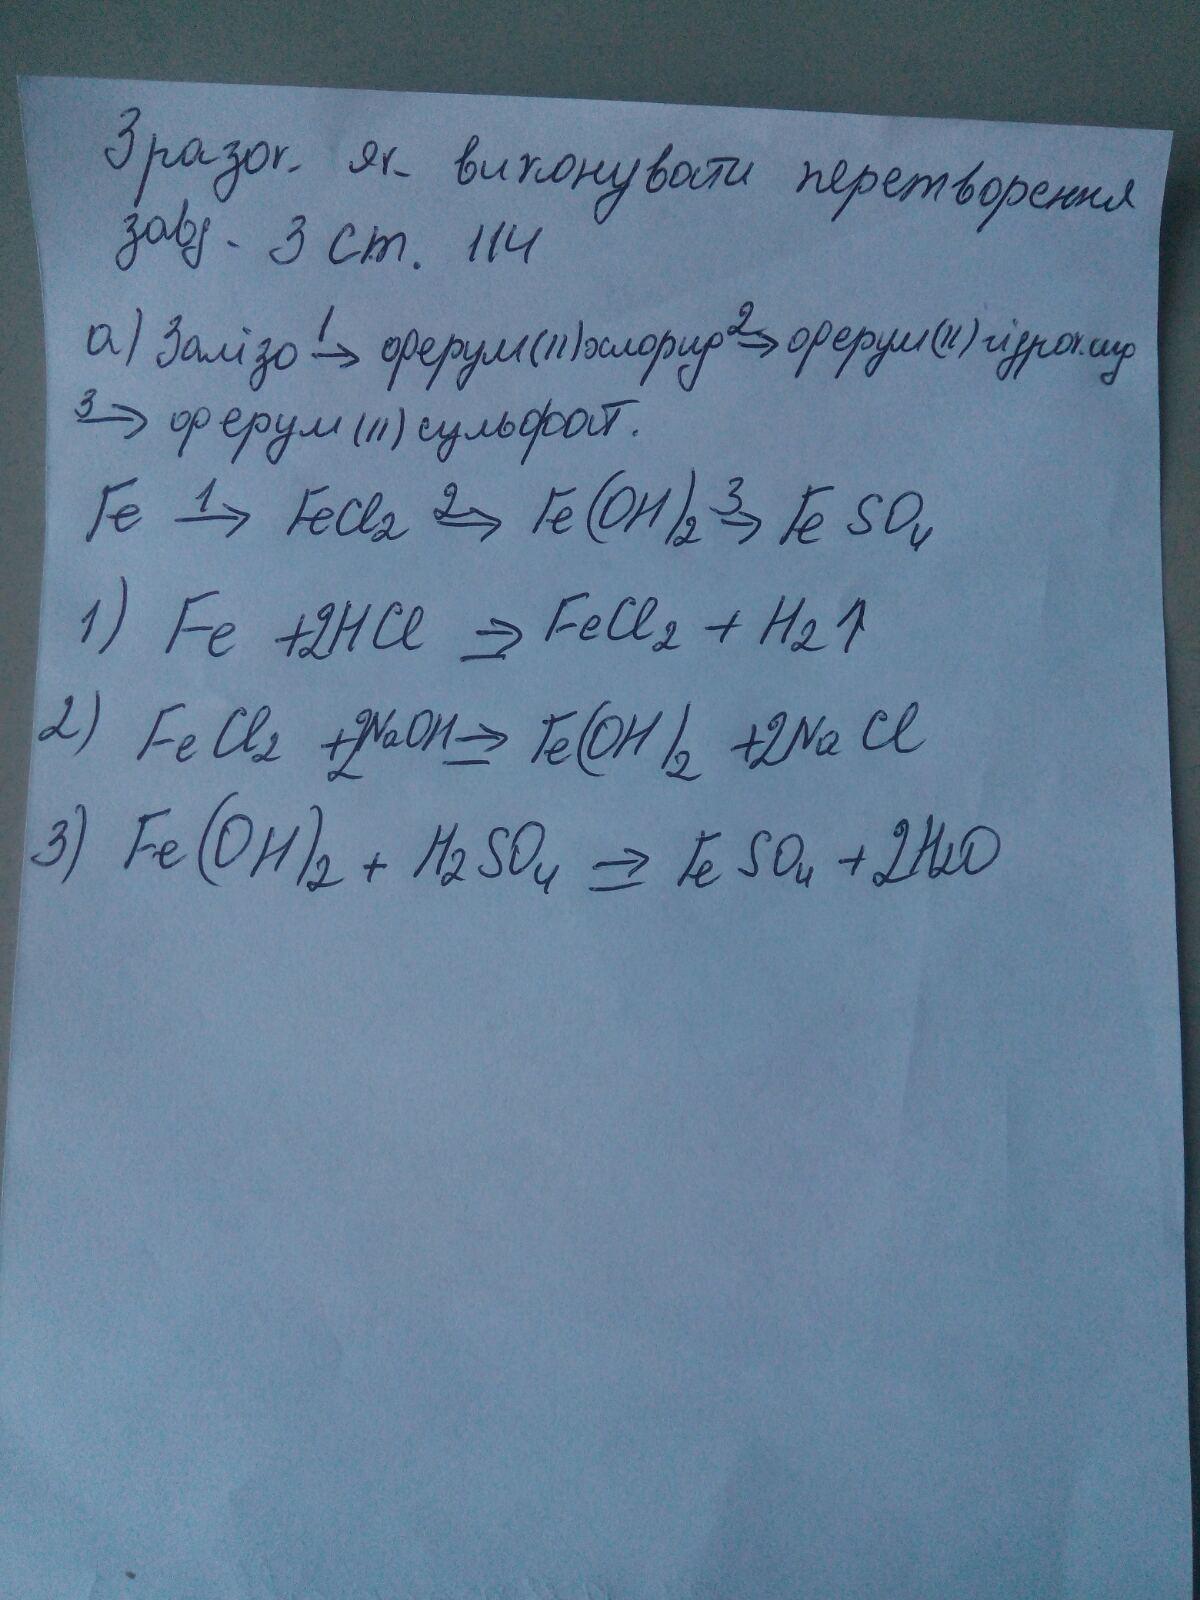 Зразок як виконувати перетворення
завд. 3 ст. 114
а) Залізо 1→ ферум(II)хлорид 2→ ферум(II)гідроксид
3→ ферум(II)сульфат.
Fe 1→ FeCl2 2→ Fe(OH)2 3→ FeSO4
1) Fe +2HCl → FeCl2 + H2↑
2) FeCl2 +2NaOH → Fe(OH)2 +2NaCl
3) Fe(OH)2 + H2SO4 → FeSO4 +2H2O